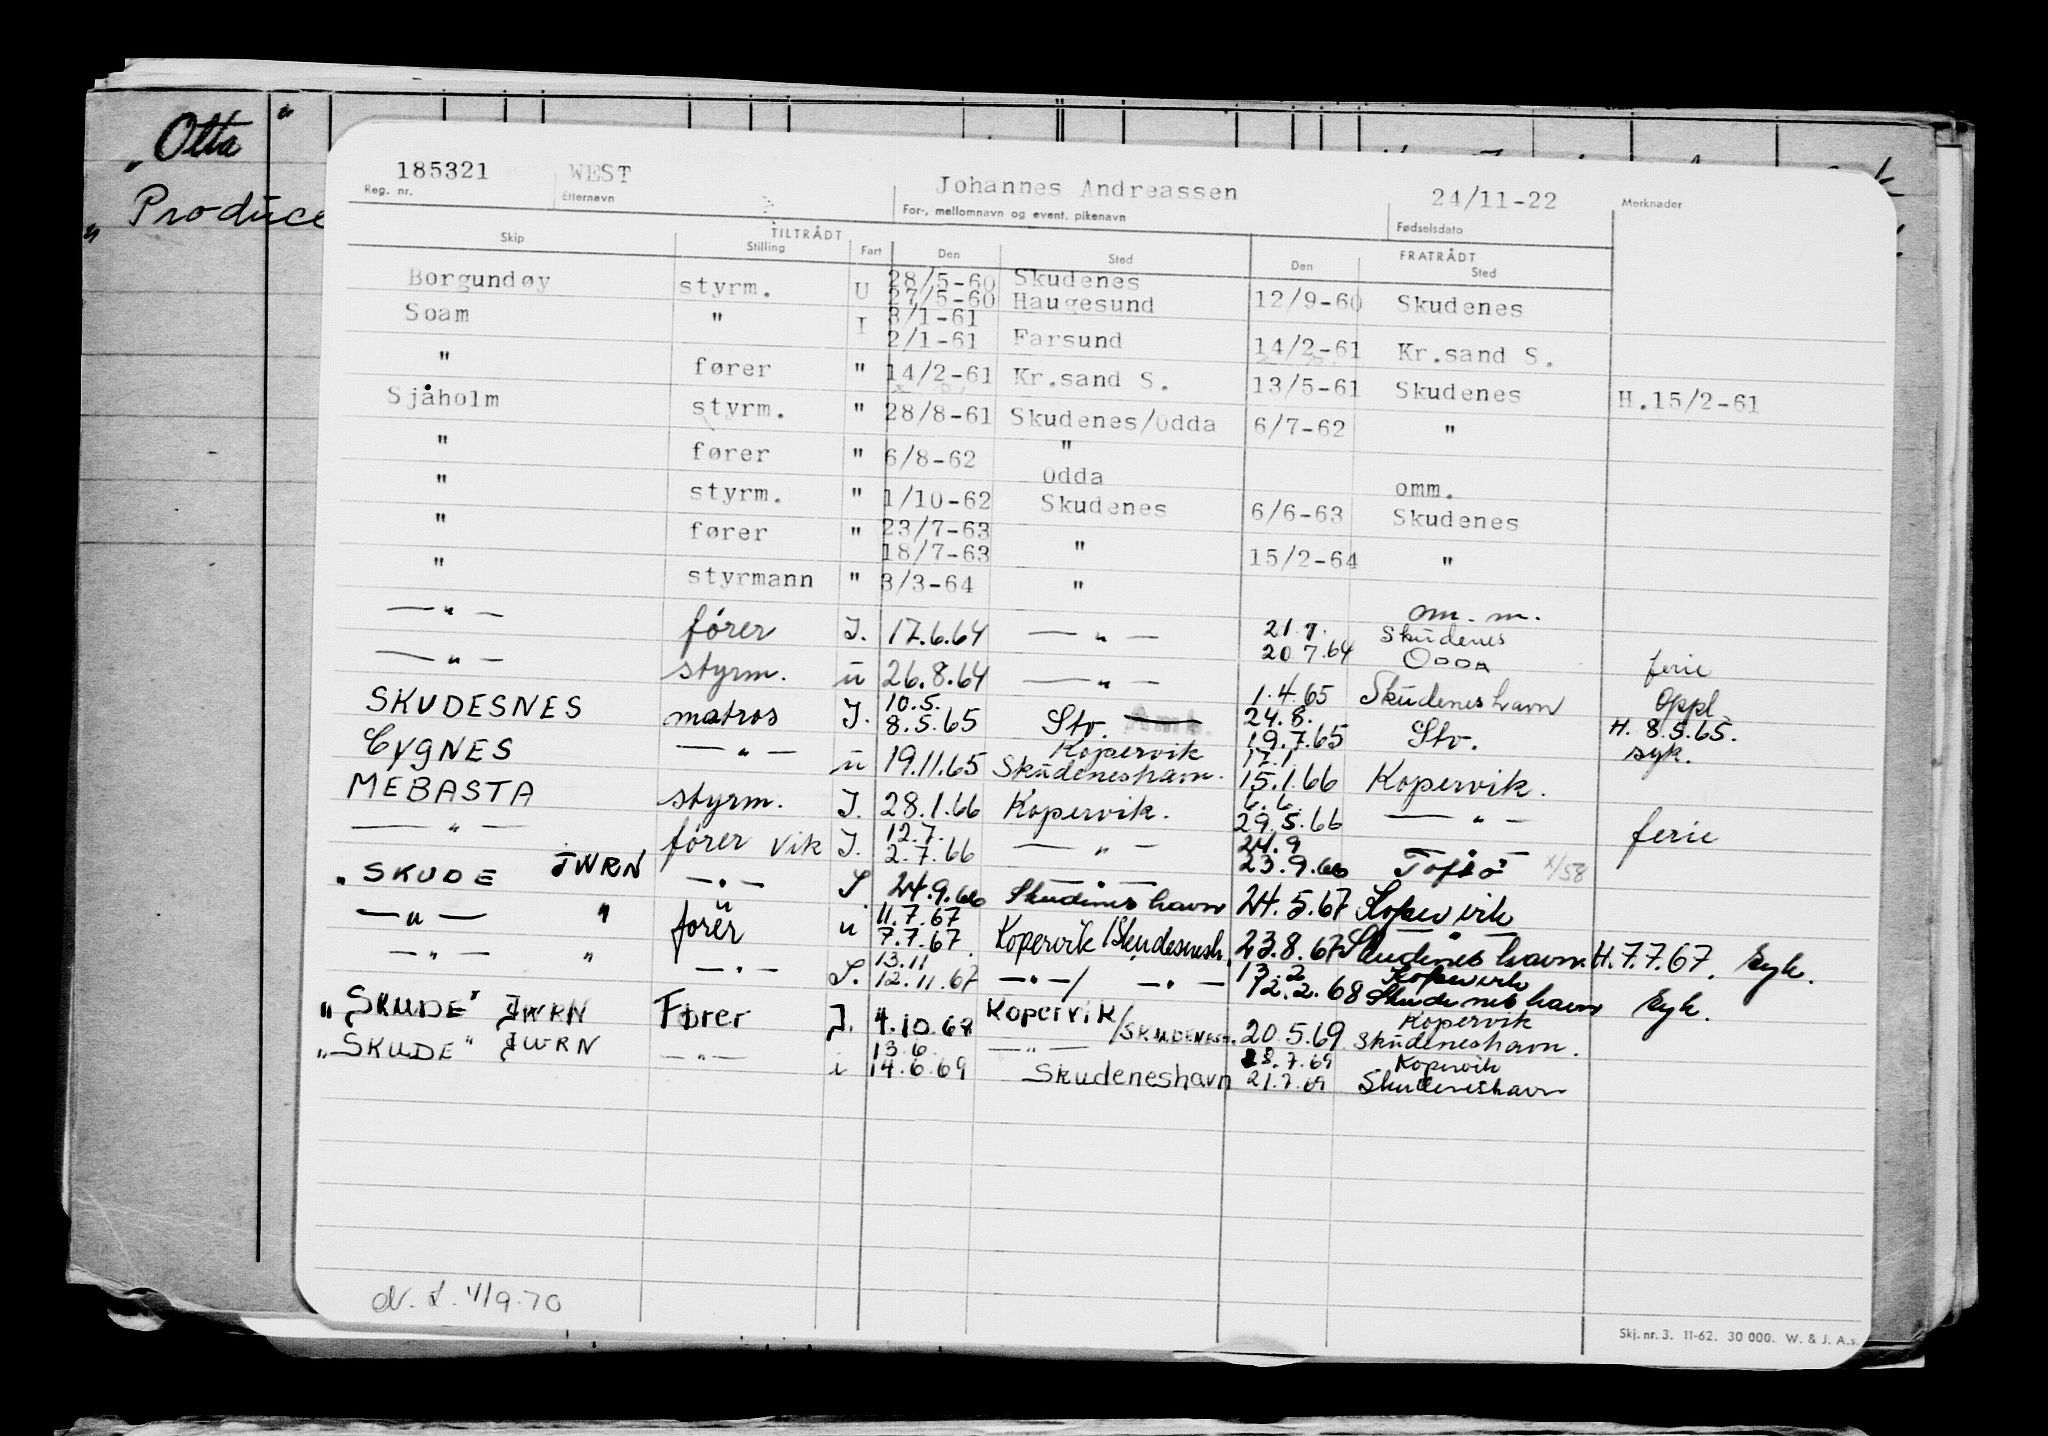 „Otta"
„Produce
185321 WEST Johannes Andreassen 24/11-22
Reg. nr. Etternavn For-, mellomnavn og event. pikenavn Fødselsdato Merknader
TILTRÅDT FRATRÅDT
Skip Stilling Fart Den Sted Den Sted
28/5-60 Skudenes
Borgundøy styrm. U 27/5-60 Haugesund 12/9-60 Skudenes
3/1-61
Soam " I 2/1-61 Farsund 14/2-61 Kr.sand S.
" fører " 14/2-61 Kr.sand S. 13/5-61 Skudenes H.15/2-61
Sjåholm styrm. " 28/8-61 Skudenes/Odda 6/7-62 "
" fører " 6/8-62 "
Odda omm.
" styrm. " 1/10-62 Skudenes 6/6-63 Skudenes
23/7-63
" fører " 18/7-63 " 15/2-64 "
" styrmann " 3/3-64 " om. m.
21.7. Skudenes
— " — fører I. 17.6.64 — " — 20.7.64 ODDA ferie
— " — styrm. u 26.8.64 — " — 1.4.65 Skudeneshavn Oppl.
10.5. 24.8.
SKUDESNES matros I. 8.5.65 Stv. 19.7.65 Stv. H. 8.5.65. syk.
Kopervik 17.1
CYGNES — " — u 19.11.65 Skudeneshavn. 15.1.66 Kopervik.
6.6.
MEBASTA styrm. I. 28.1.66 Kopervik. 29.5.66 — " — ferie
12.7. 24.9
— " — fører vik I. 2.7.66 — " — 23.9.66 Toftø x/58
„SKUDE JWRN — " — 24.9.66 Skudeneshavn 24.5.67 Kopervik
11.7.67
— " — " fører u 7.7.67. Kopervik/Skudesnesh. 23.8.67 Skudeneshavn. H.7.7.67. syk.
13.11 13.2 Kopervik
— " — " — " — 12.11.67 — " —/ — " — 12.2.68 Skudeneshavn syk.
Kopervik
„SKUDE" JWRN Fører J. 4.10.68 Kopervik/SKUDENESH. 20.5.69 Skudeneshavn.
13.6. — " — 7.69 Kopervik
„SKUDE" JWRN — " — i 14.6.69 Skudeneshavn 21.7.69 Skudeneshavn
9.70
Skj. nr. 3. 11-62. 30 000. W. & J. A.s.